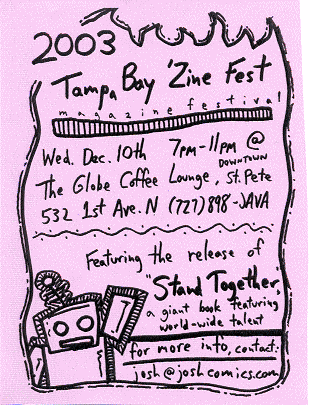 2003
Tampa Bay 'Zine Fest
magazine festival
Wed. Dec. 10th 7pm-11pm @
DOWNTOWN
The Globe Coffee Lounge, St. Pete
532 1st Ave. N (727) 898-JAVA
Featuring the release of
"Stand Together,"
a giant book featuring
world-wide talent
for more info, contact:
josh@joshcomics.com